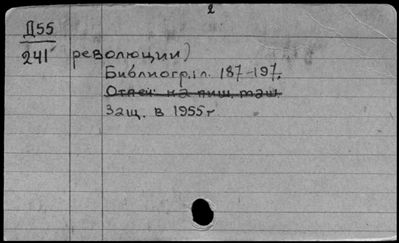 2
Д55
241 революции)
Библиогр.: л. 187-197.
Отпеч. на пиш. маш.
Защ. в 1955 г